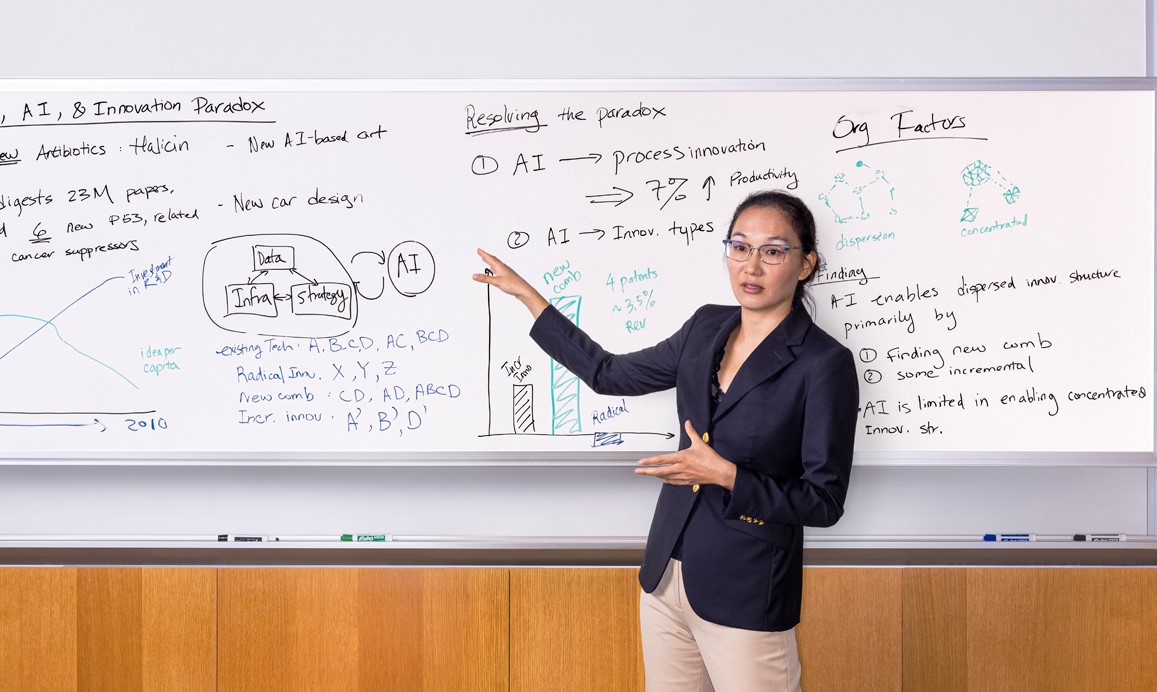 , AI, & Innovation Paradox
Antibiotics : Halicin
- New AI-based art
digests 23M papers,
6 new P53, related
cancer suppressors
- New car design
Investment
in R&D
ideas per
capita
2010
Data
Infra
Strategy
AI
existing Tech: A, B, C, D, AC, BCD
Radical Inn. X, Y, Z
New comb : CD, AD, ABCD
Incr. innov : A', B', D'
Resolving the paradox
① AI → process innovation
⇒ 7% ↑ Productivity
② AI → Innov. types
new
comb
4 patents
~ 3.5%
Rev
Incr
Inno
Radical
Org Factors
dispersion
concentrated
Finding
AI enables dispersed innov. structure
primarily by
① finding new comb
② some incremental
AI is limited in enabling concentrated
Innov. str.
EXPO